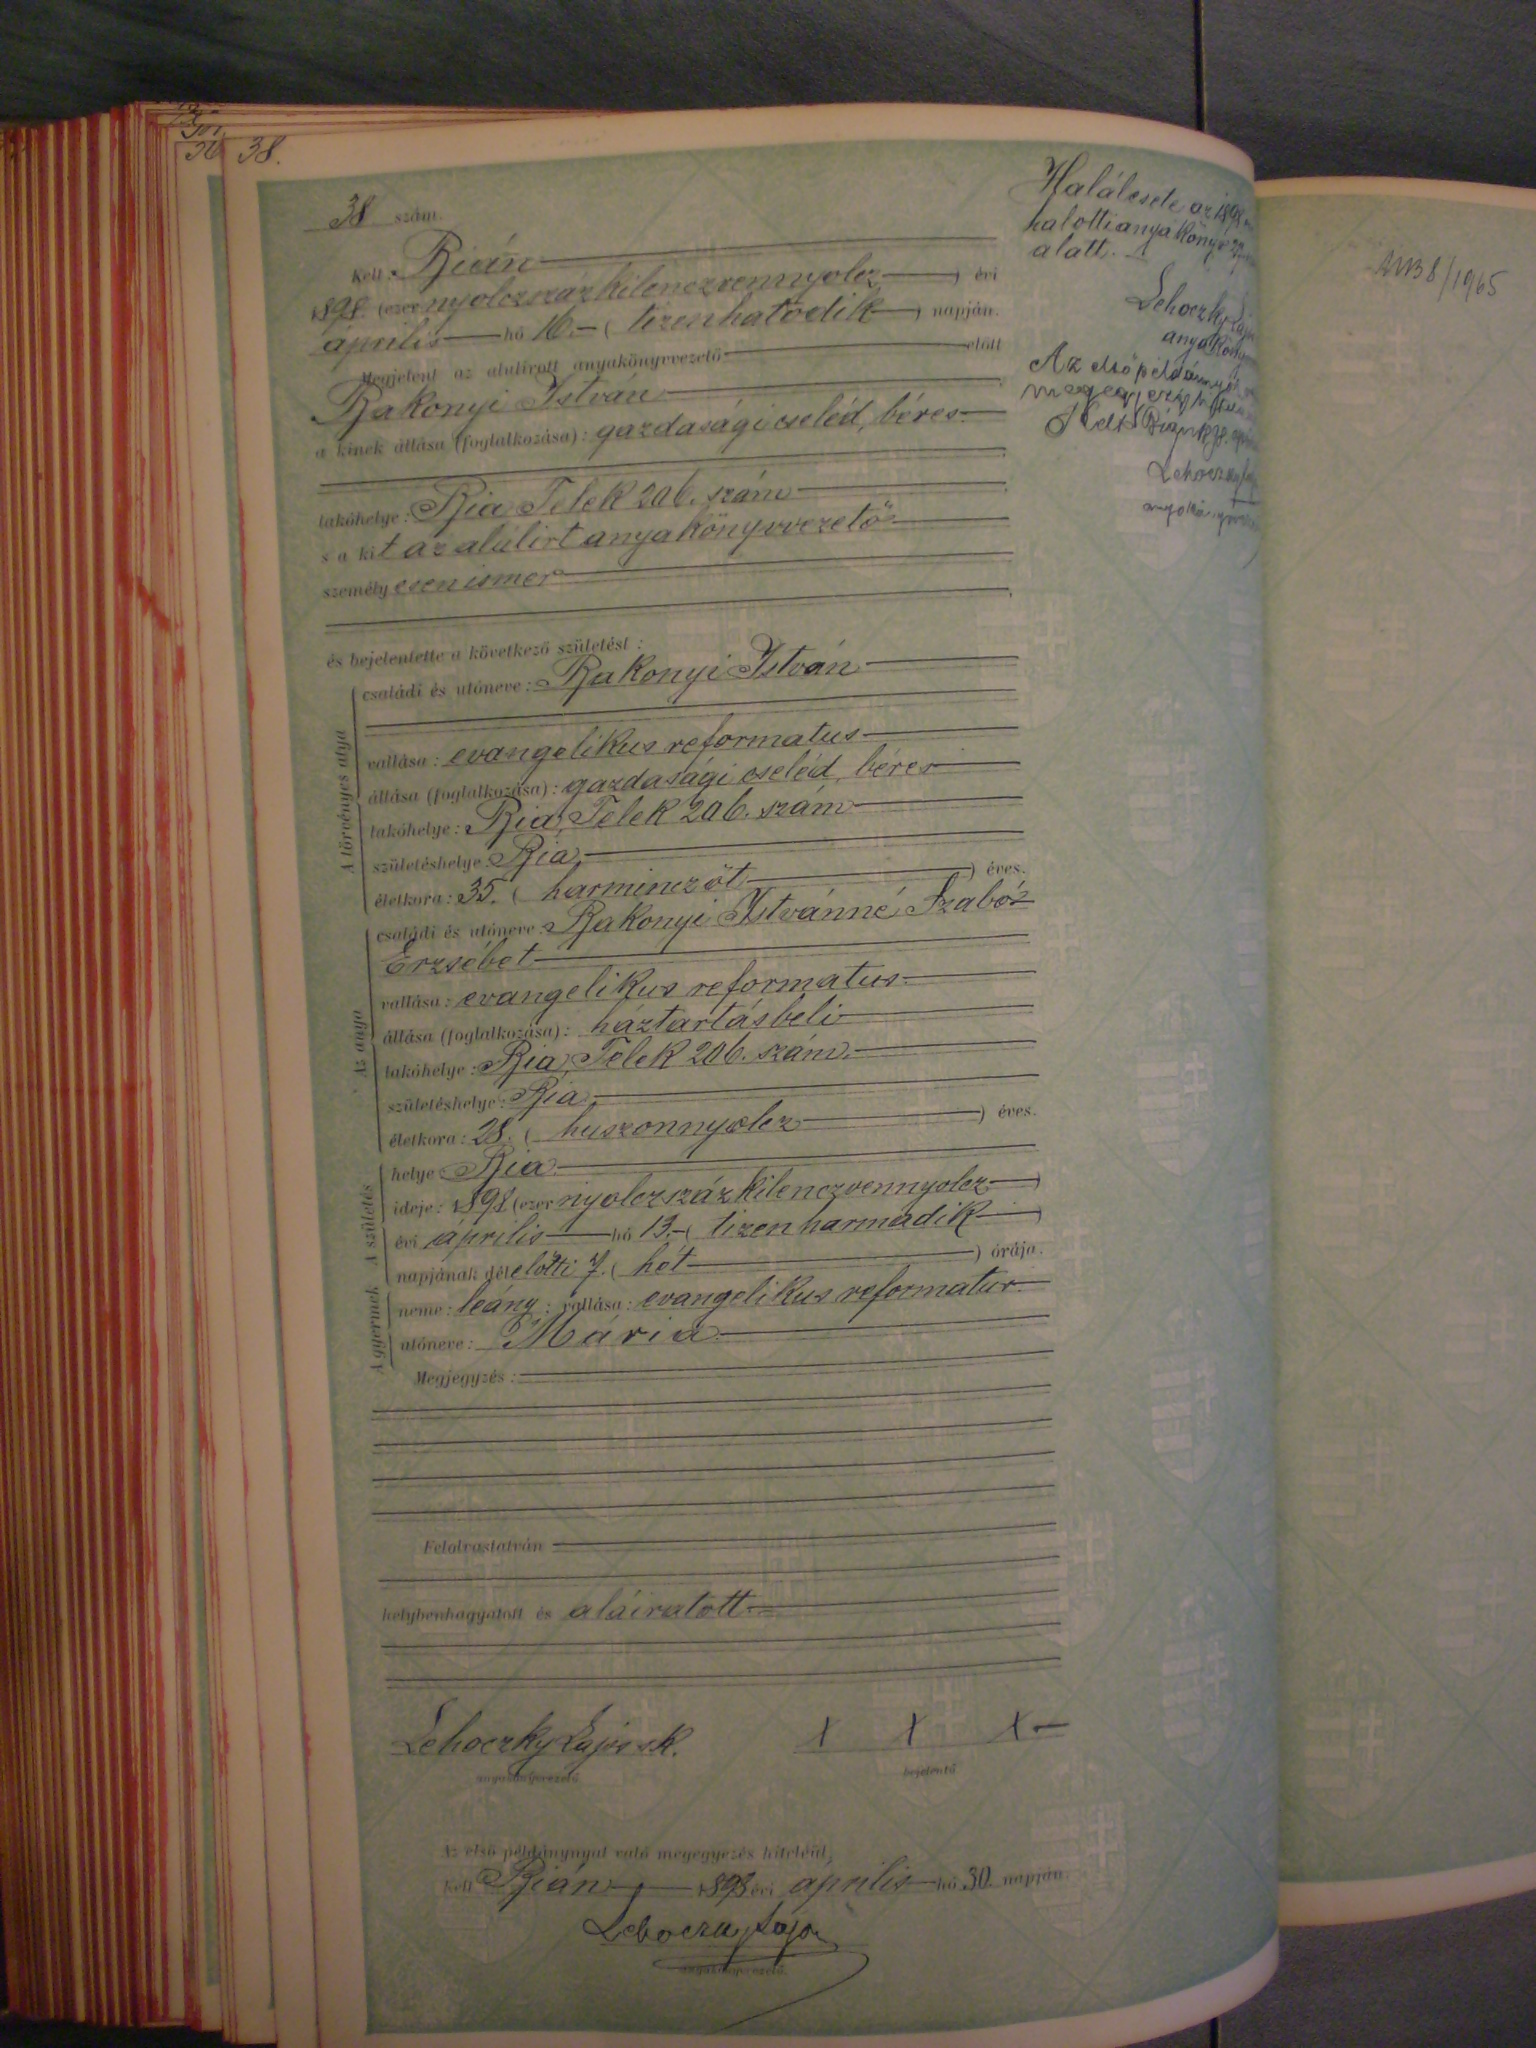 38.
38 szám.
Kelt: Bián
1898. (ezer nyolczszázkilenczvennyolcz) évi
április hó 16. (tizenhatodik) napján.
Megjelent az alulirott anyakönyvvezető előtt
Bakonyi István
a kinek állása (foglalkozása): gazdasági cseléd, béres
lakóhelye: Bia Telek 206. szám
s a kit az alúlirt anyakönyvvezető
személyesen ismer
és bejelentette a következő születést:
A törvényes atya
családi és utóneve: Bakonyi István
vallása: evangelikus reformatus
állása (foglalkozása): gazdasági cseléd, béres
lakóhelye: Bia, Telek 206. szám
születéshelye: Bia,
életkora: 35. (harminczöt) éves.
Az anya
családi és utóneve: Bakonyi Istvánné, Szabó
Erzsébet
vallása: evangelikus reformatus.
állása (foglalkozása): háztartásbeli
lakóhelye: Bia, Telek 206. szám.
születéshelye: Bia
életkora: 28. (huszonnyolcz) éves.
A születés
helye: Bia
ideje: 1898 (ezer nyolczszázkilenczvennyolcz)
évi április hó 13. (tizenharmadik)
napjának délelőtti 7. (hét) órája.
A gyermek
neme: leány; vallása: evangelikus reformatus
utóneve: Mária
Megjegyzés:
Felolvastatván
helybenhagyatott és aláiratott.
Lehoczky Lajos sk.
anyakönyvvezető
X X X
bejelentő
Az első példánynyal való megegyezés hiteléül,
Kelt Bián, 1898 évi április hó 30. napján.
Lehoczky Lajos
anyakönyvvezető.
Halálesete az 1898
halotti anyakönyv
alatt.
Lehoczky Lajos
Az első példánnyal
Kelt Bián
Lehoczky
/1965